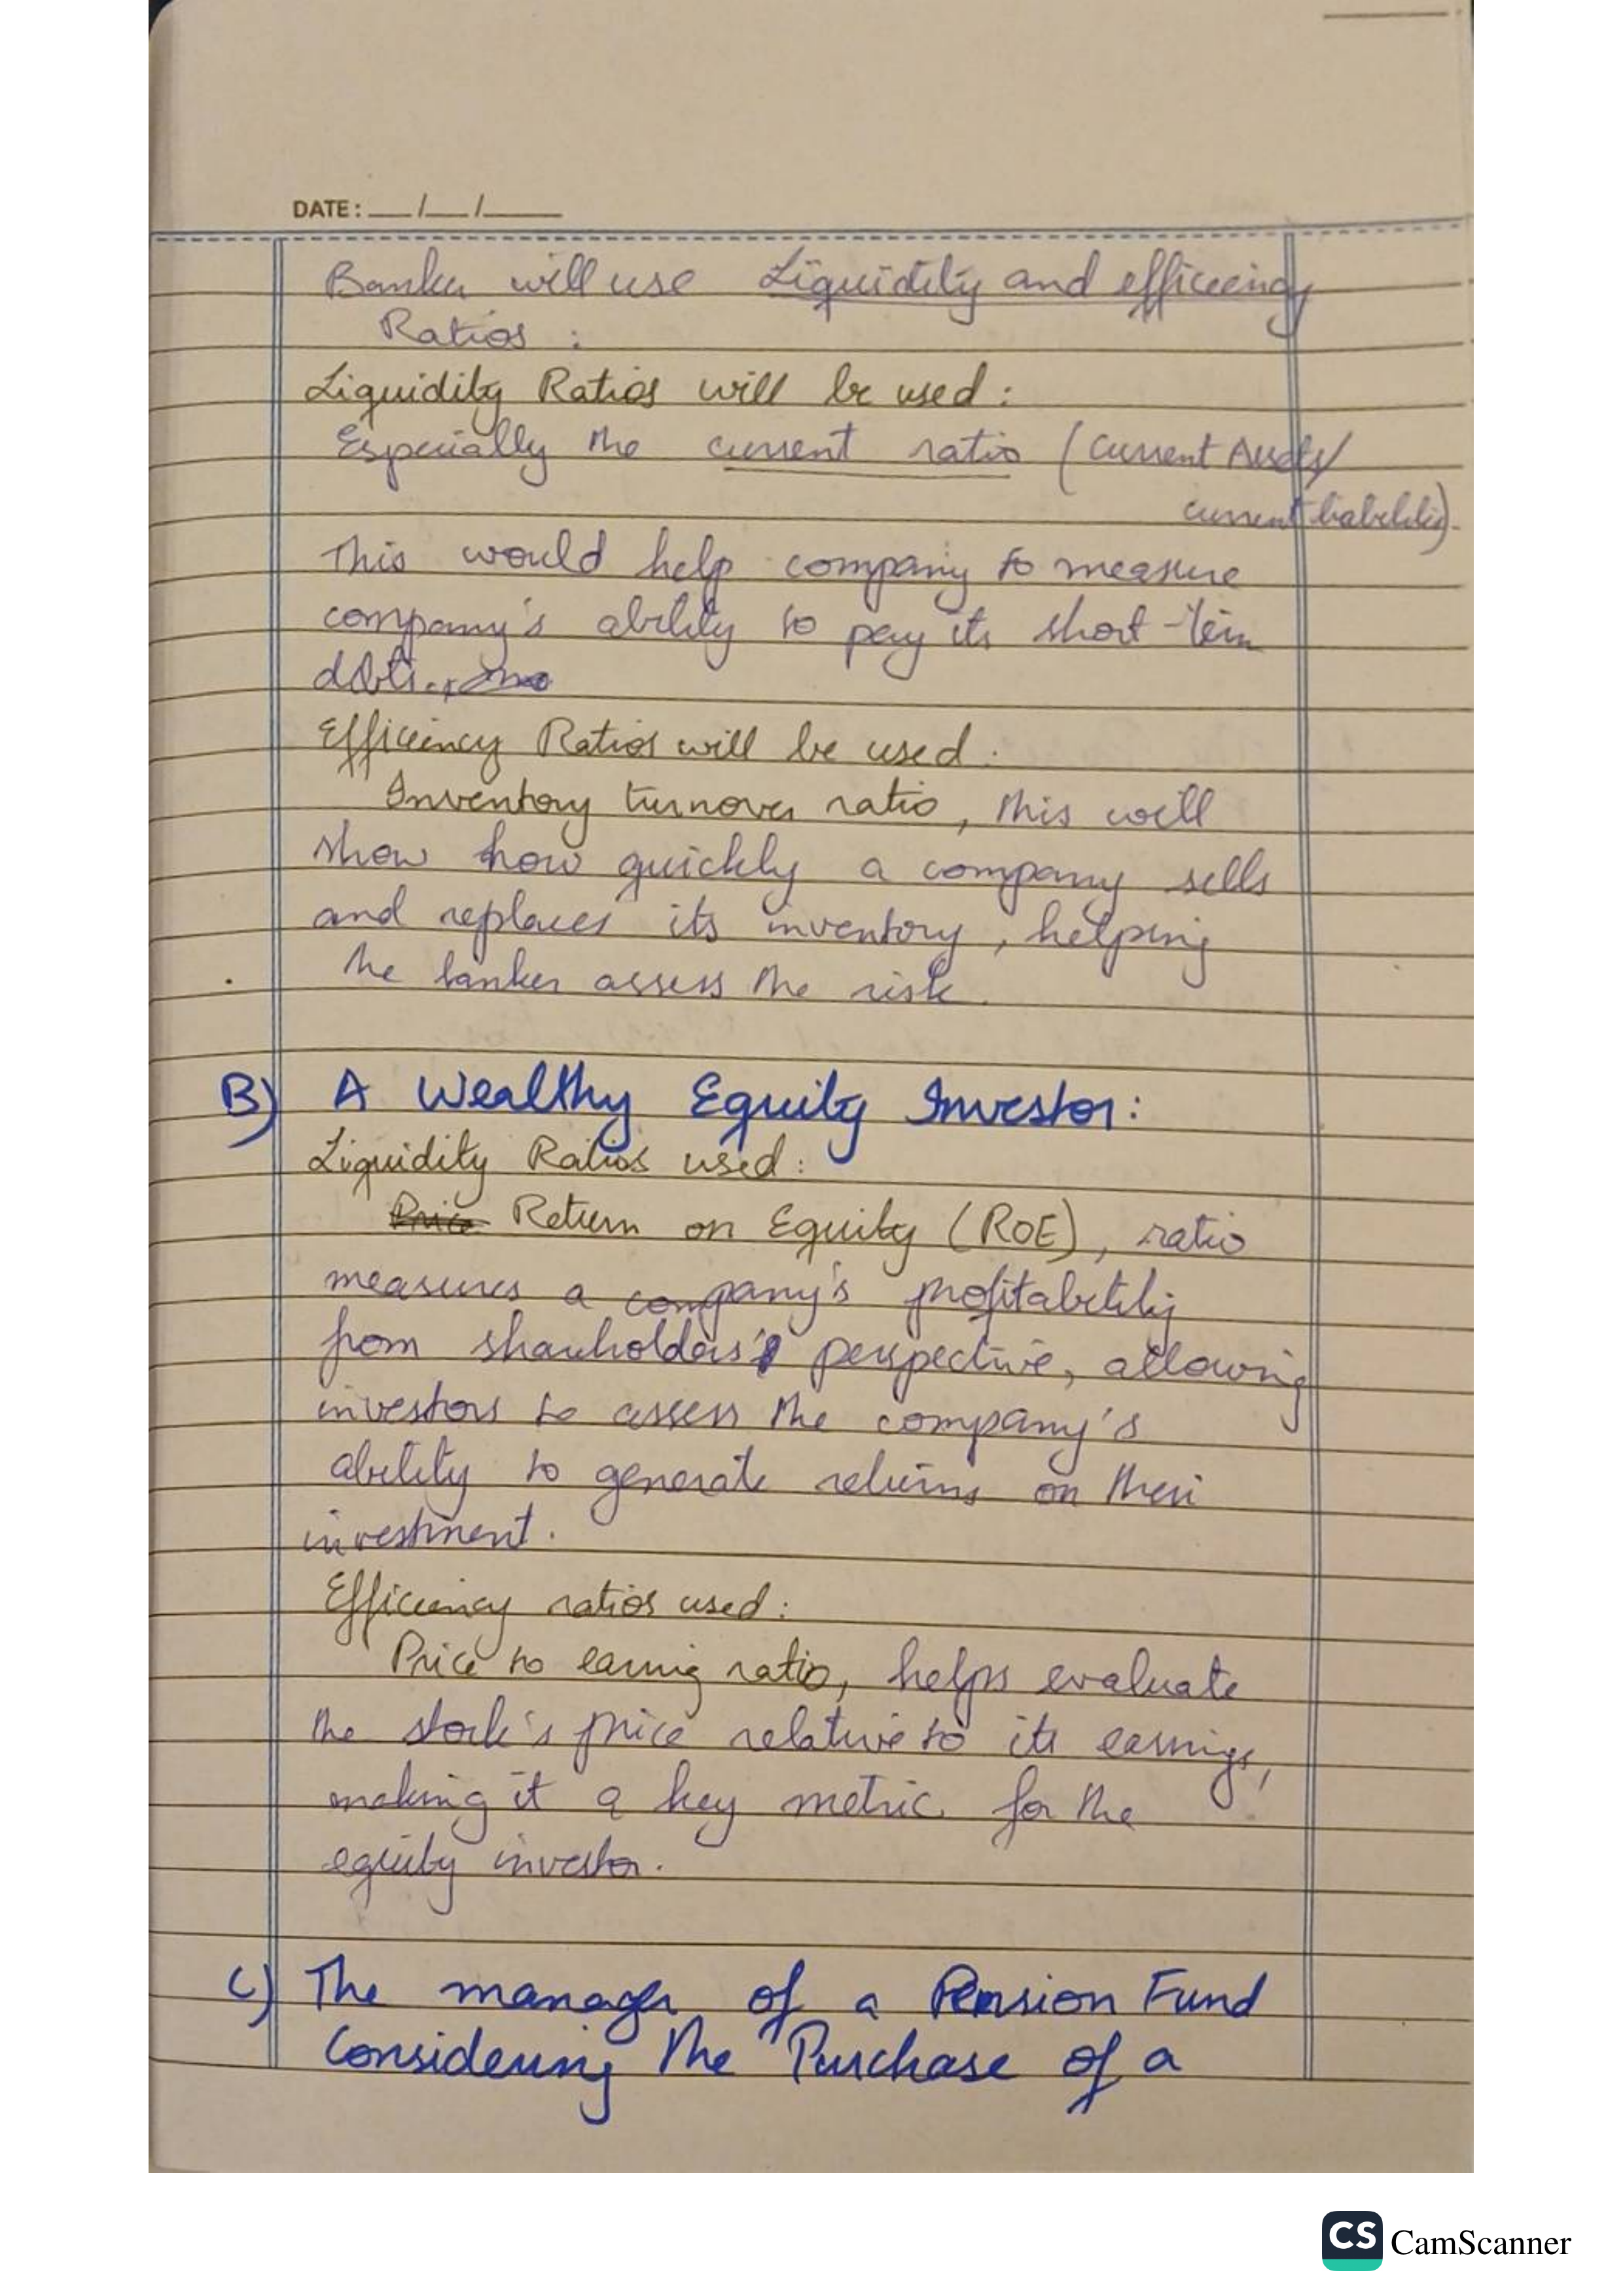 DATE: __/__/____
Banker will use Liquidity and efficiency
Ratios :
Liquidity Ratios will be used :
Especially the current ratio (Current Assets/
current liabilities).
This would help company to measure
company's ability to pay its short-term
debts.
Efficiency Ratios will be used.
Inventory turnover ratio, this will
show how quickly a company sells
and replaces its inventory, helping
the banker assess the risk.
B) A Wealthy Equity Investor:
Liquidity Ratios used :
Price Return on Equity (ROE), ratio
measures a company's profitability
from shareholders' perspective, allowing
investors to assess the company's
ability to generate returns on their
investment.
Efficiency ratios used :
Price to earning ratio, helps evaluate
the stock's price relative to its earnings,
making it a key metric for the
equity investor.
C) The manager of a Pension Fund
Considering the Purchase of a
CS CamScanner